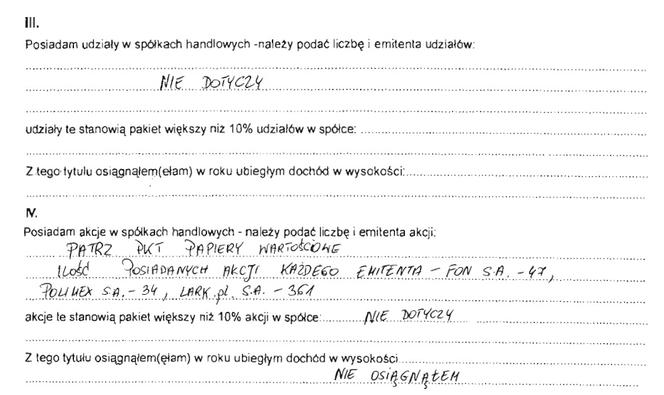 III.
Posiadam udziały w spółkach handlowych -należy podać liczbę i emitenta udziałów:
NIE DOTYCZY
udziały te stanowią pakiet większy niż 10% udziałów w spółce:
Z tego tytułu osiągnąłem(ełam) w roku ubiegłym dochód w wysokości:
IV.
Posiadam akcje w spółkach handlowych - należy podać liczbę i emitenta akcji:
PATRZ PKT PAPIERY WARTOŚCIOWE
ILOŚĆ POSIADANYCH AKCJI KAŻDEGO EMITENTA - FON S.A. - 47,
POLIMEX S.A. - 34, LARK.pl S.A. - 361
akcje te stanowią pakiet większy niż 10% akcji w spółce: NIE DOTYCZY
Z tego tytułu osiągnąłem(ełam) w roku ubiegłym dochód w wysokości
NIE OSIĄGNĄŁEM